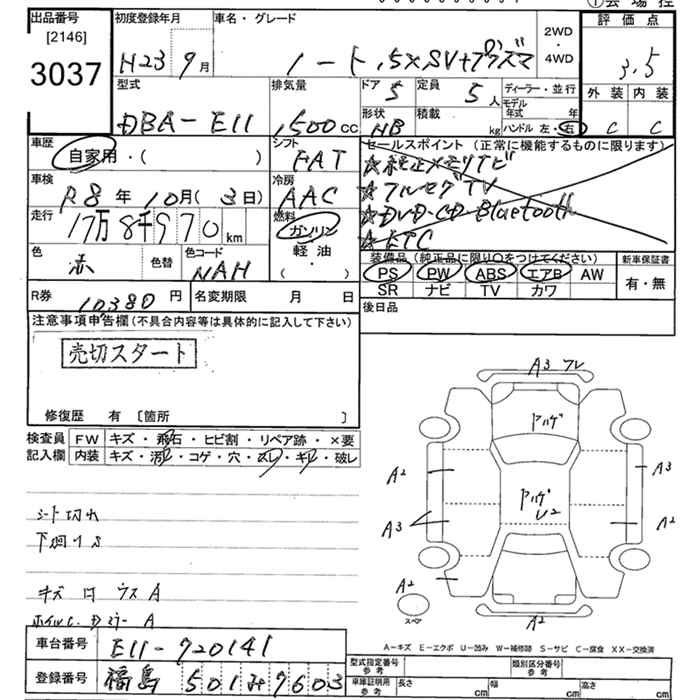 出品番号
[2146]
3037
初度登録年月
H23 9月
車名・グレード
ノート 1.5X SV+プラズマ
2WD
・
4WD
評価点
3.5
外装 内装
C C
型式
DBA-E11
排気量
1500cc
ドア
5
定員
5人
形状
HB
積載
kg
ディーラー・並行
モデル
年式 年
ハンドル 左・右
車歴
自家用・( )
シフト
FAT
セールスポイント(正常に機能するものに限ります)
☆純正メモリナビ
☆フルセグTV
☆DVD・CD・Bluetooth
☆ETC
車検
R8年10月(3日)
冷房
AAC
走行
17万8千970km
燃料
ガソリン
軽油
( ・ )
色
赤
色替
色コード
NAH
装備品(純正品に限り○をつけてください)
PS PW ABS エアB AW
SR ナビ TV カワ
新車保証書
有・無
R券
10380円
名変期限 月 日
後日品
注意事項申告欄(不具合内容等は具体的に記入して下さい)
売切スタート
修復歴 有 [箇所 ]
検査員
記入欄
FW キズ・飛石・ヒビ割・リペア跡・×要
内装 キズ・汚れ・コゲ・穴・スレ・キレ・破レ
シート切れ
下回りS
A3 ワレ
ハゲ
A2
A3
ハゲ
A3
A2
A2
A2
スペア
車台番号
E11-720141
登録番号
福島 501 み 7603
A-キズ E-エクボ U-凹み W-補修跡 S-サビ C-腐食 XX-交換済
型式指定番号
参考
類別区分番号
参考
車庫証明用
参考
長さ cm
幅 cm
高さ cm